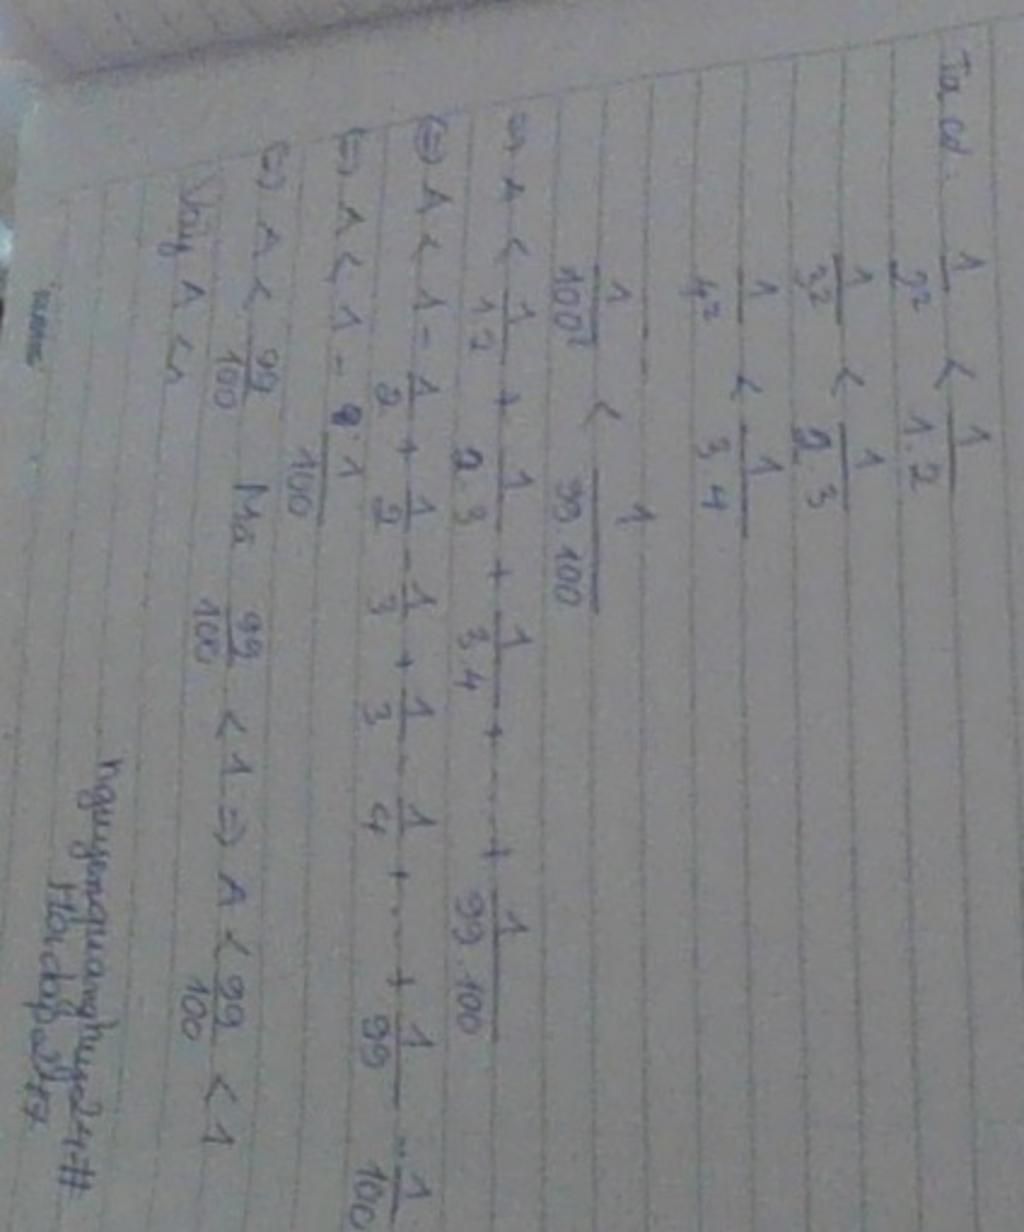 Ta có: 1/2² < 1/1.2
1/3² < 1/2.3
1/4² < 1/3.4
1/100² < 1/99.100
=> A < 1/1.2 + 1/2.3 + 1/3.4 + ... + 1/99.100
<=> A < 1 - 1/2 + 1/2 - 1/3 + 1/3 - 1/4 + ... + 1/99 - 1/100
<=> A < 1 - 1/100
<=> A < 99/100 Mà 99/100 < 1 => A < 99/100 < 1
Vậy A < 1
nguyenquanghuy2k4#
Hoidap247